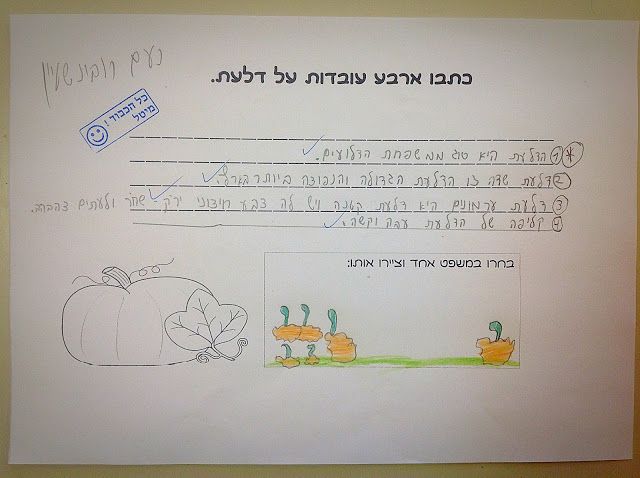 נעם רובינשטיין
כתבו ארבע עובדות על דלעת.
כל הכבוד!
מיטל
① הדלעת היא סוג ממשפחת הדלועים.
② דלעת שדה זו הדלעת הגדולה והנפוצה ביותר בארץ.
③ דלעת ערמונים היא דלעת קטנה ויש לה צבע חיצוני ירק שחר ולעתים צהבהב.
④ קליפה של הדלעת עבה וקשה.
בחרו במשפט אחד וציירו אותו: